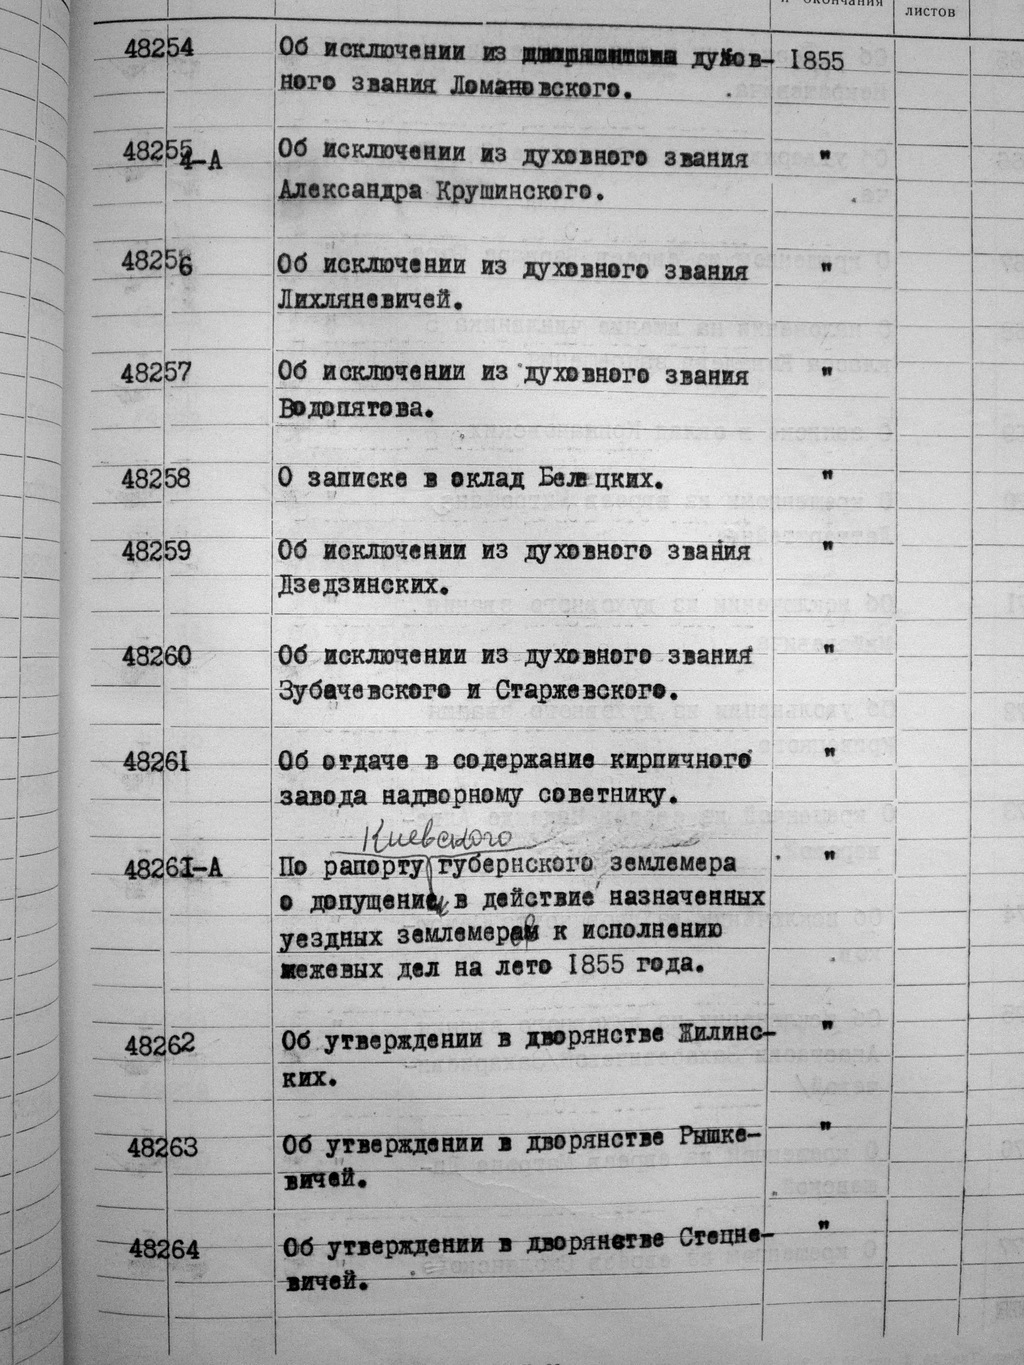 и окончания
листов
48254 Об исключении из духов- 1855
ного звания Ломановского.
48254-А Об исключении из духовного звания "
Александра Крушинского.
48256 Об исключении из духовного звания "
Лихляневичей.
48257 Об исключении из духовного звания "
Водопятова.
48258 О записке в оклад Белецких. "
48259 Об исключении из духовного звания "
Дзедзинских.
48260 Об исключении из духовного звания "
Зубачевского и Старжевского.
48261 Об отдаче в содержание кирпичного "
завода надворному советнику.
Киевского
48261-А По рапорту губернского землемера "
о допущении в действие назначенных
уездных землемеров к исполнению
межевых дел на лето 1855 года.
48262 Об утверждении в дворянстве Жилинс- "
ких.
48263 Об утверждении в дворянстве Рышке- "
вичей.
48264 Об утверждении в дворянстве Стецне- "
вичей.